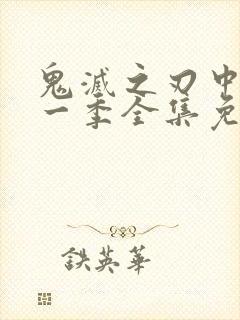 鬼滅之刃中
一季全集免
鉄英華